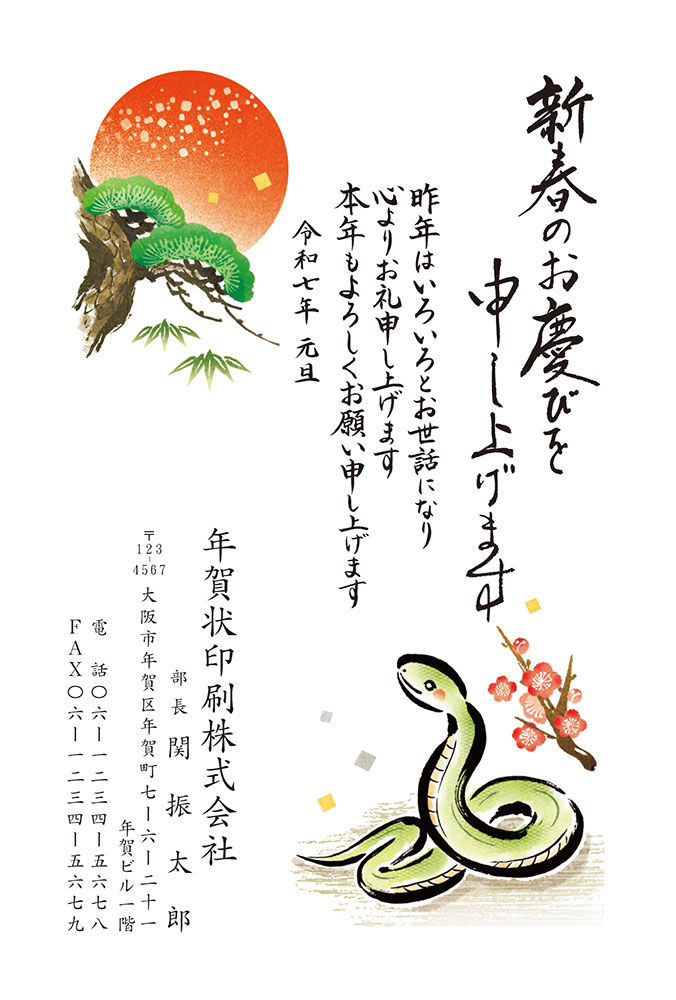 新春のお慶びを
申し上げます
昨年はいろいろとお世話になり
心よりお礼申し上げます
本年もよろしくお願い申し上げます
令和七年 元旦
年賀状印刷株式会社
部長 関振太郎
〒123-4567 大阪市年賀区年賀町七ー六ー二十一
年賀ビル一階
電 話〇六ー一二三四ー五六七八
FAX〇六ー一二三四ー五六七九